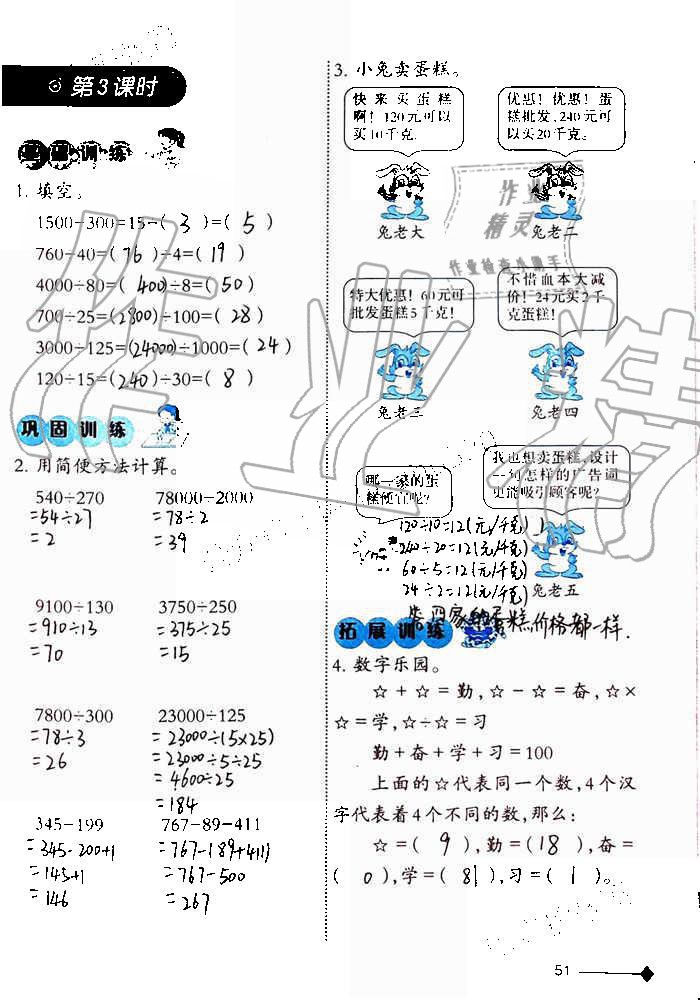 第3课时
基础训练
1. 填空。
1500-300=15-( 3 )=( 5 )
760-40=( 76 )÷4=( 19 )
4000÷80=( 400 )÷8=( 50 )
700÷25=( 2800 )÷100=( 28 )
3000÷125=( 24000 )÷1000=( 24 )
120÷15=( 240 )÷30=( 8 )
巩固训练
2. 用简便方法计算。
540÷270 78000-2000
=54÷27 =78÷2
=2 =39
9100÷130 3750÷250
=910÷13 =375÷25
=70 =15
7800÷300 23000÷125
=78÷3 =23000÷(5×25)
=26 =23000÷5÷25
=4600÷25
=184
345-199 767-89-411
=345-200+1 =767-(89+411)
=145+1 =767-500
=146 =267
3. 小兔卖蛋糕。
快来买蛋糕
啊！120元可以
买10千克。
兔老大
优惠！优惠！蛋
糕批发，240元可
以买20千克。
兔老二
特大优惠！60元可
批发蛋糕5千克！
兔老三
不惜血本大减
价！24元买2千
克蛋糕！
兔老四
哪一家的蛋
糕便宜呢？
我也想卖蛋糕，设计
一句怎样的广告词
更能吸引顾客呢？
兔老五
120÷10=12(元/千克)
240÷20=12(元/千克)
60÷5=12(元/千克)
24÷2=12(元/千克)
答：四家的蛋糕价格都一样.
拓展训练
4. 数字乐园。
☆+☆=勤，☆-☆=奋，☆×
☆=学，☆÷☆=习
勤+奋+学+习=100
上面的☆代表同一个数，4个汉
字代表着4个不同的数，那么：
☆=( 9 )，勤=( 18 )，奋=
( 0 )，学=( 81 )，习=( 1 )。
51
作业精灵
作业检查小帮手
作业精灵